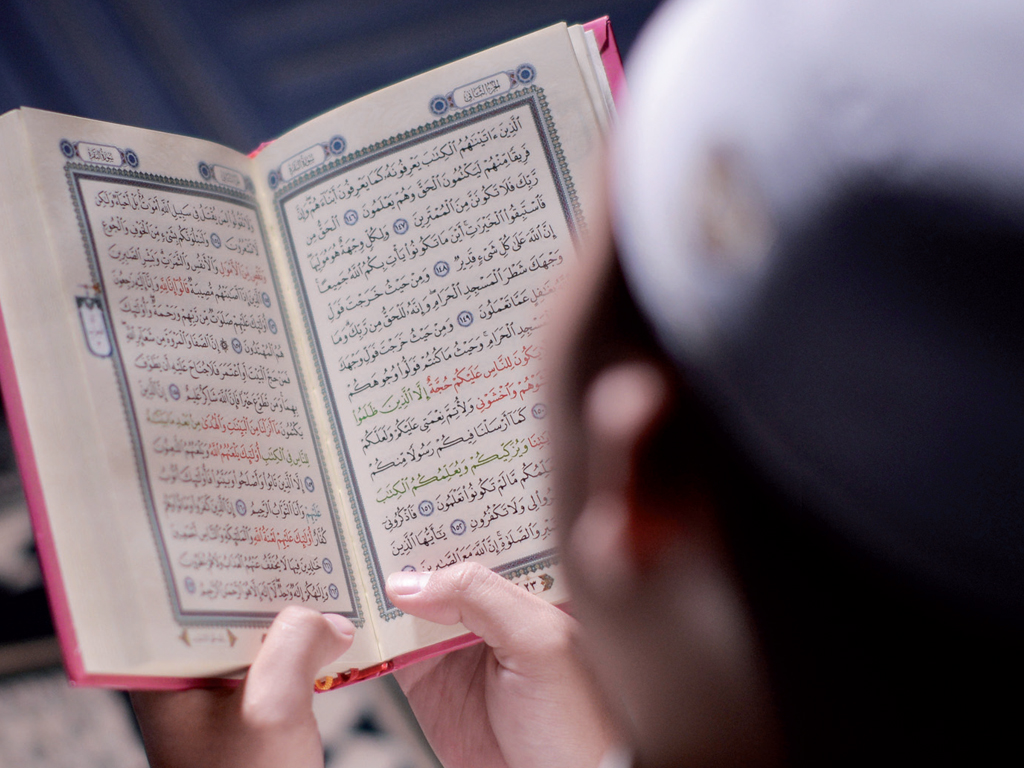 الجزء الثاني
سورة البقرة
ٱلَّذِينَ ءَاتَيْنَٰهُمُ ٱلْكِتَٰبَ يَعْرِفُونَهُۥ كَمَا يَعْرِفُونَ أَبْنَآءَهُمْ وَإِنَّ
فَرِيقًا مِّنْهُمْ لَيَكْتُمُونَ ٱلْحَقَّ وَهُمْ يَعْلَمُونَ ١٤٦ ٱلْحَقُّ مِن
رَّبِّكَ فَلَا تَكُونَنَّ مِنَ ٱلْمُمْتَرِينَ ١٤٧ وَلِكُلٍّ وِجْهَةٌ هُوَ مُوَلِّيهَا
فَٱسْتَبِقُوا۟ ٱلْخَيْرَٰتِ أَيْنَ مَا تَكُونُوا۟ يَأْتِ بِكُمُ ٱللَّهُ جَمِيعًا
إِنَّ ٱللَّهَ عَلَىٰ كُلِّ شَىْءٍ قَدِيرٌ ١٤٨ وَمِنْ حَيْثُ خَرَجْتَ فَوَلِّ
وَجْهَكَ شَطْرَ ٱلْمَسْجِدِ ٱلْحَرَامِ وَإِنَّهُۥ لَلْحَقُّ مِن رَّبِّكَ وَمَا
عَمَّا تَعْمَلُونَ ١٤٩ وَمِنْ حَيْثُ خَرَجْتَ فَوَلِّ وَجْهَكَ
ٱلْحَرَامِ وَحَيْثُ مَا كُنتُمْ فَوَلُّوا۟ وُجُوهَكُمْ
يَكُونَ لِلنَّاسِ عَلَيْكُمْ حُجَّةٌ إِلَّا ٱلَّذِينَ ظَلَمُوا۟
وَٱخْشَوْنِى وَلِأُتِمَّ نِعْمَتِى عَلَيْكُمْ وَلَعَلَّكُمْ
١٥٠ كَمَآ أَرْسَلْنَا فِيكُمْ رَسُولًا مِّنكُمْ
وَيُزَكِّيكُمْ وَيُعَلِّمُكُمُ ٱلْكِتَٰبَ
مَّا لَمْ تَكُونُوا۟ تَعْلَمُونَ ١٥١ فَٱذْكُرُونِىٓ
لِى وَلَا تَكْفُرُونِ ١٥٢ يَٰٓأَيُّهَا ٱلَّذِينَ
وَٱلصَّلَوٰةِ إِنَّ ٱللَّهَ مَعَ ٱلصَّٰبِرِينَ
٢٣
سورة البقرة
وَلَا تَقُولُوا۟ لِمَن يُقْتَلُ فِى سَبِيلِ ٱللَّهِ أَمْوَٰتٌۢ بَلْ أَحْيَآءٌ وَلَٰكِن
لَّا تَشْعُرُونَ ١٥٤ وَلَنَبْلُوَنَّكُم بِشَىْءٍ مِّنَ ٱلْخَوْفِ وَٱلْجُوعِ
وَنَقْصٍ مِّنَ ٱلْأَمْوَٰلِ وَٱلْأَنفُسِ وَٱلثَّمَرَٰتِ وَبَشِّرِ ٱلصَّٰبِرِينَ
١٥٥ ٱلَّذِينَ إِذَآ أَصَٰبَتْهُم مُّصِيبَةٌ قَالُوٓا۟ إِنَّا لِلَّهِ وَإِنَّآ إِلَيْهِ رَٰجِعُونَ
١٥٦ أُو۟لَٰٓئِكَ عَلَيْهِمْ صَلَوَٰتٌ مِّن رَّبِّهِمْ وَرَحْمَةٌ وَأُو۟لَٰٓئِكَ
هُمُ ٱلْمُهْتَدُونَ ١٥٧ إِنَّ ٱلصَّفَا وَٱلْمَرْوَةَ مِن شَعَآئِرِ ٱللَّهِ
فَمَنْ حَجَّ ٱلْبَيْتَ أَوِ ٱعْتَمَرَ فَلَا جُنَاحَ عَلَيْهِ أَن يَطَّوَّفَ
بِهِمَا وَمَن تَطَوَّعَ خَيْرًا فَإِنَّ ٱللَّهَ شَاكِرٌ عَلِيمٌ ١٥٨ إِنَّ ٱلَّذِينَ
يَكْتُمُونَ مَآ أَنزَلْنَا مِنَ ٱلْبَيِّنَٰتِ وَٱلْهُدَىٰ مِنۢ بَعْدِ مَا بَيَّنَّٰهُ
لِلنَّاسِ فِى ٱلْكِتَٰبِ أُو۟لَٰٓئِكَ يَلْعَنُهُمُ ٱللَّهُ وَيَلْعَنُهُمُ ٱللَّٰعِنُونَ
١٥٩ إِلَّا ٱلَّذِينَ تَابُوا۟ وَأَصْلَحُوا۟ وَبَيَّنُوا۟ فَأُو۟لَٰٓئِكَ أَتُوبُ
عَلَيْهِمْ وَأَنَا ٱلتَّوَّابُ ٱلرَّحِيمُ ١٦٠ إِنَّ ٱلَّذِينَ كَفَرُوا۟ وَمَاتُوا۟ وَهُمْ
كُفَّارٌ أُو۟لَٰٓئِكَ عَلَيْهِمْ لَعْنَةُ ٱللَّهِ وَٱلْمَلَٰٓئِكَةِ وَٱلنَّاسِ أَجْمَعِينَ
١٦١ خَٰلِدِينَ فِيهَا لَا يُخَفَّفُ عَنْهُمُ ٱلْعَذَابُ وَلَا هُمْ يُنظَرُونَ
١٦٢ وَإِلَٰهُكُمْ إِلَٰهٌ وَٰحِدٌ لَّآ إِلَٰهَ إِلَّا هُوَ ٱلرَّحْمَٰنُ ٱلرَّحِيمُ ١٦٣